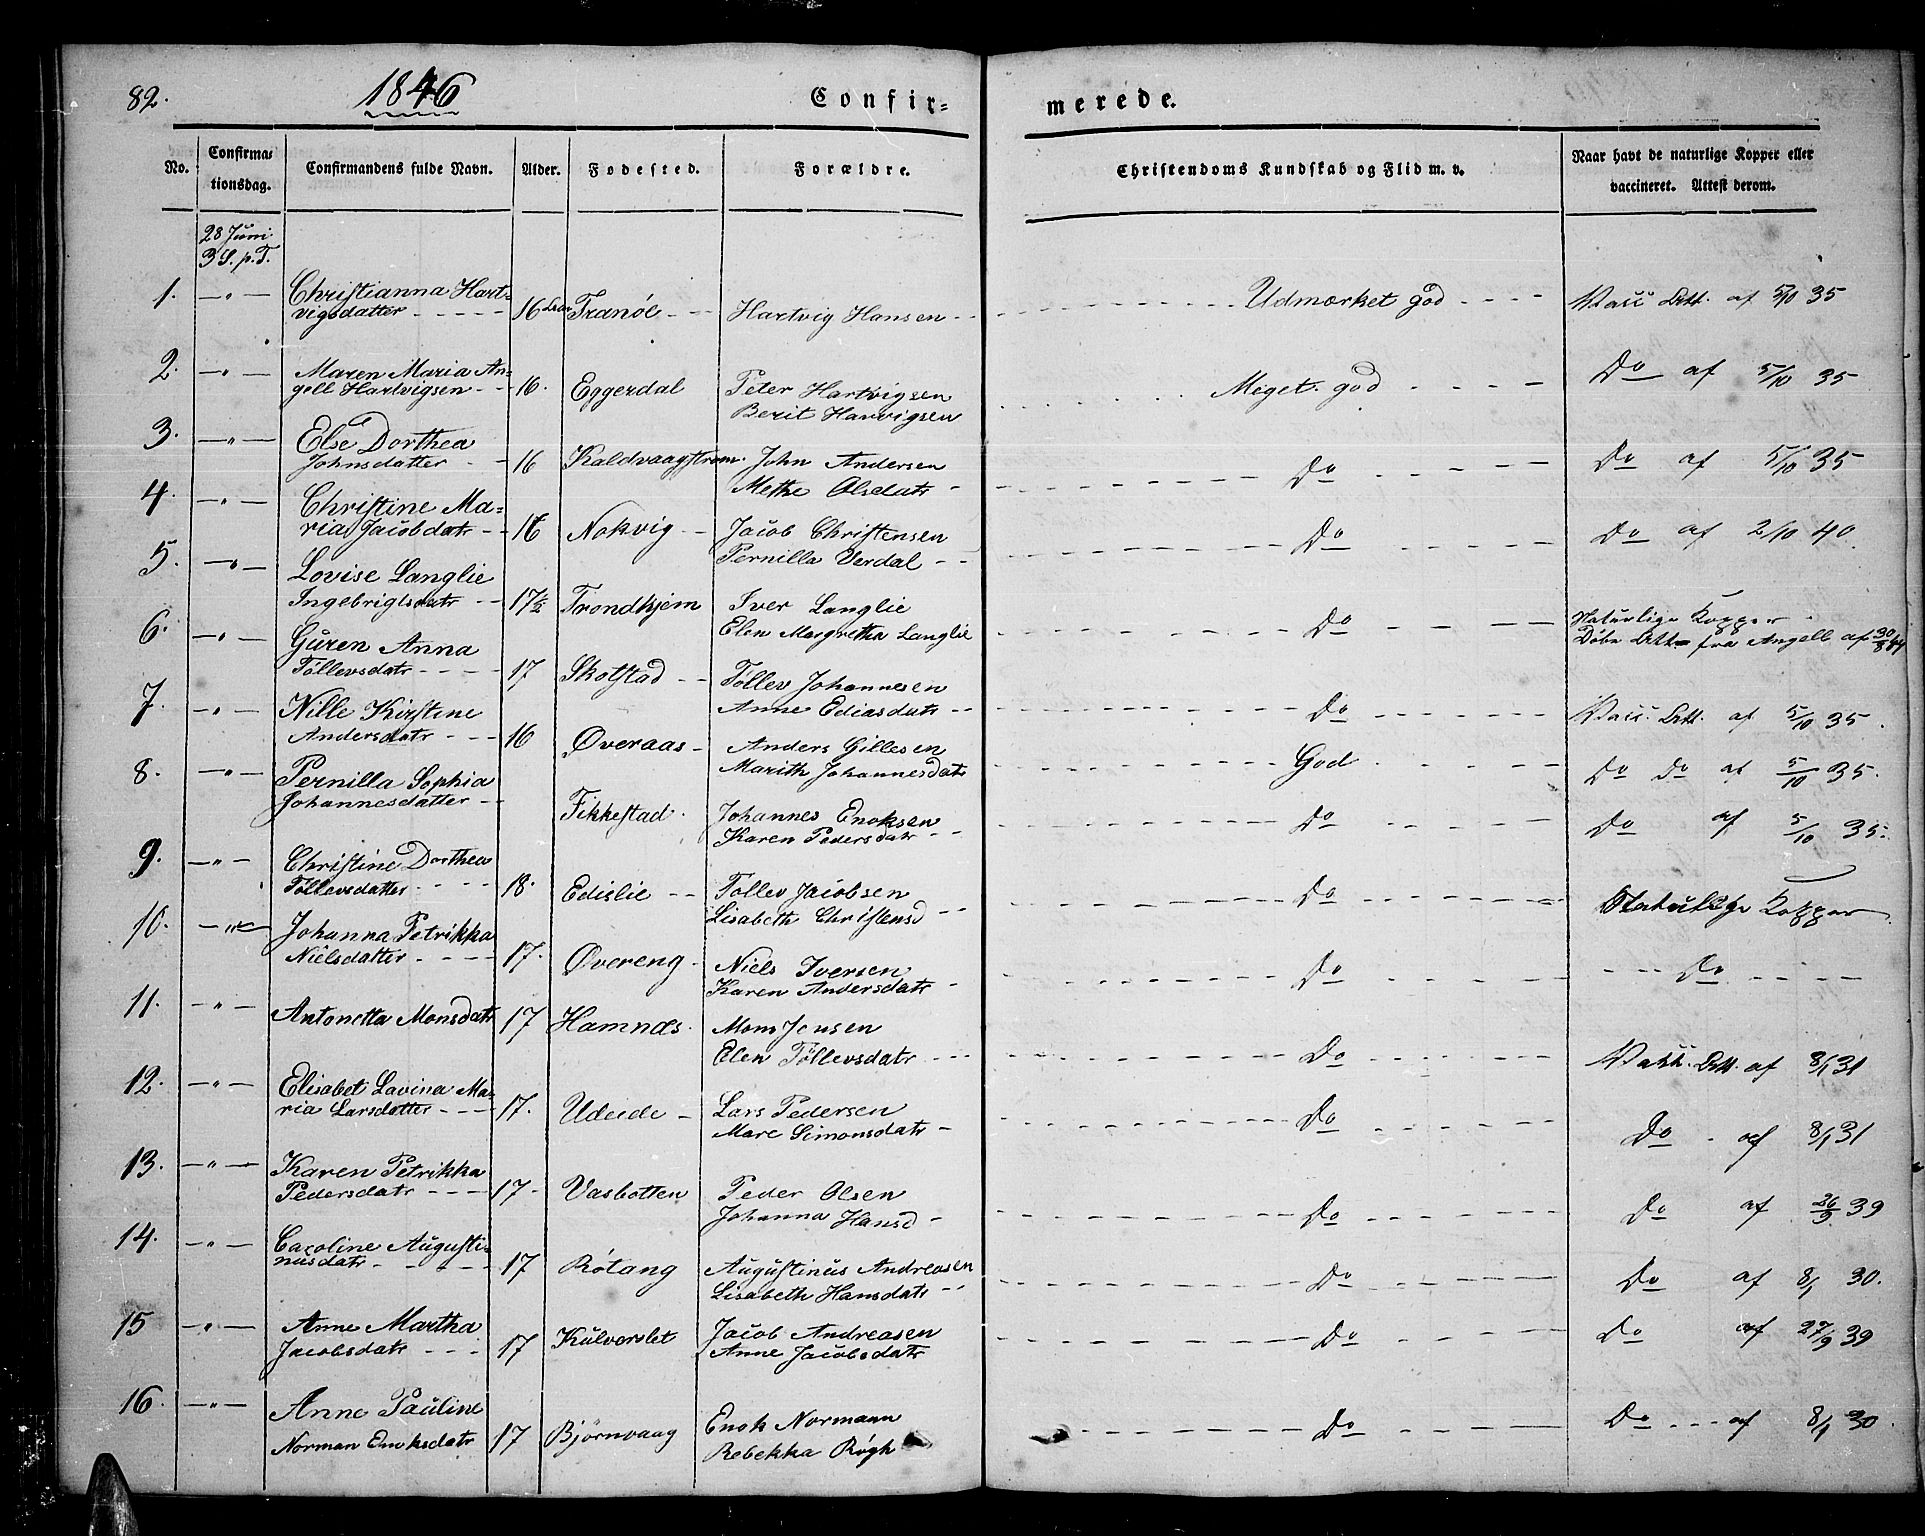 82.
1846
Confir=
merede.
No.
Confirma=
tionsdag.
Confirmandens fulde Navn.
Alder.
Fødested.
Forældre.
Christendoms Kundskab og Flid m. v.
Naar havt de naturlige Kopper eller
vaccineret. Attest derom.
28 Juni
3 S. p. T.
1. —"— Christianna Hart=
vigsdatter - - - - 16 Tranöe - - Hartvig Hansen - - Udmærket god - - - Vacc Att. af 5/10 35
2. —"— Maren Maria An=
gell Hartvigsen - - 16. Eggerdal Peter Hartvigsen
Berit Harvigsen Meget god - - - Do af 5/10 35
3. —"— Else Dorthea
Johnsdatter - - 16 Kaldvaagstrøm. John Andersen
Methe Olsdatr - Do - - - Do af 5/10 35
4. —"— Christine Ma=
ria Jacobdatr - - 16 Nokvig - - Jacob Christensen
Pernilla Verdal - - Do - - - Do af 2/10 40.
5. —"— Lovise Langlie
Ingebrigtsdatr - - 17½ Trondhjem Iver Langlie
Elen Margretha Langlie Do - - - Naturlige Kopper
Döbe Att fra Angell af 30/8 44
6. —"— Guren Anna
Töllevsdatr - - - 17 Skotstad - - Töllev Johannesen
Anne Ediasdatr - - Do - - - Vacc. Att. af 5/10 35.
7. —"— Nille Kirstine
Andersdatr - - - 16 Øveraas - Anders Gillesen
Marith Johannesdatr God - - - Do do af 5/10 35.
8. —"— Pernilla Sophia
Johannesdatter - - Fikkestad. Johannes Enoksen
Karen Pedersdatr - - Do - - - Do af 5/10 35.
9. —"— Christine Dorthea
Töllevsdatter - - - 18. Edislie - - Tollev Jacobsen
Lisabeth Christensd - - Do - - - Naturlige Kopper
10. —"— Johanna Petrikka
Nielsdatter - - - - 17. Øvereng - Niels Iversen
Karen Andersdatr - Do - - - - - - Do - - - -
11. —"— Antonetta Monsdatr 17 Hamnæs. Mons Jensen
Elen Töllevsdatr - - - Do - - - Vacc. Att. af 8/1 31
12. —"— Elisabet Lavina Ma=
ria Larsdatter - - - 17. Udeide - Lars Pedersen
Mare Simonsdatr - Do - - - Do . af 8/1 31
13. —"— Karen Petrikka
Pedersdatr - - - 17. Vasbotten Peder Olsen
Johanna Hansd - Do - - - Do af 26/9 39
14. —"— Caroline Augusti=
nusdatr - - - - 17 Rötang Augustinus Andreasen
Lisabeth Hansdatr - - Do - - - Do af 8/1 30.
15 —"— Anne Martha
Jacobsdatr - - - 17 Kulverslet Jacob Andreasen
Anne Jacobsdatr Do - - - Do af 27/9 39
16. —"— Anne Pauline
Norman Enoksdatr 17 Bjørnvaag Enok Normann
Rebekka Røgh Do - - - Do - - - af 8/1 30.